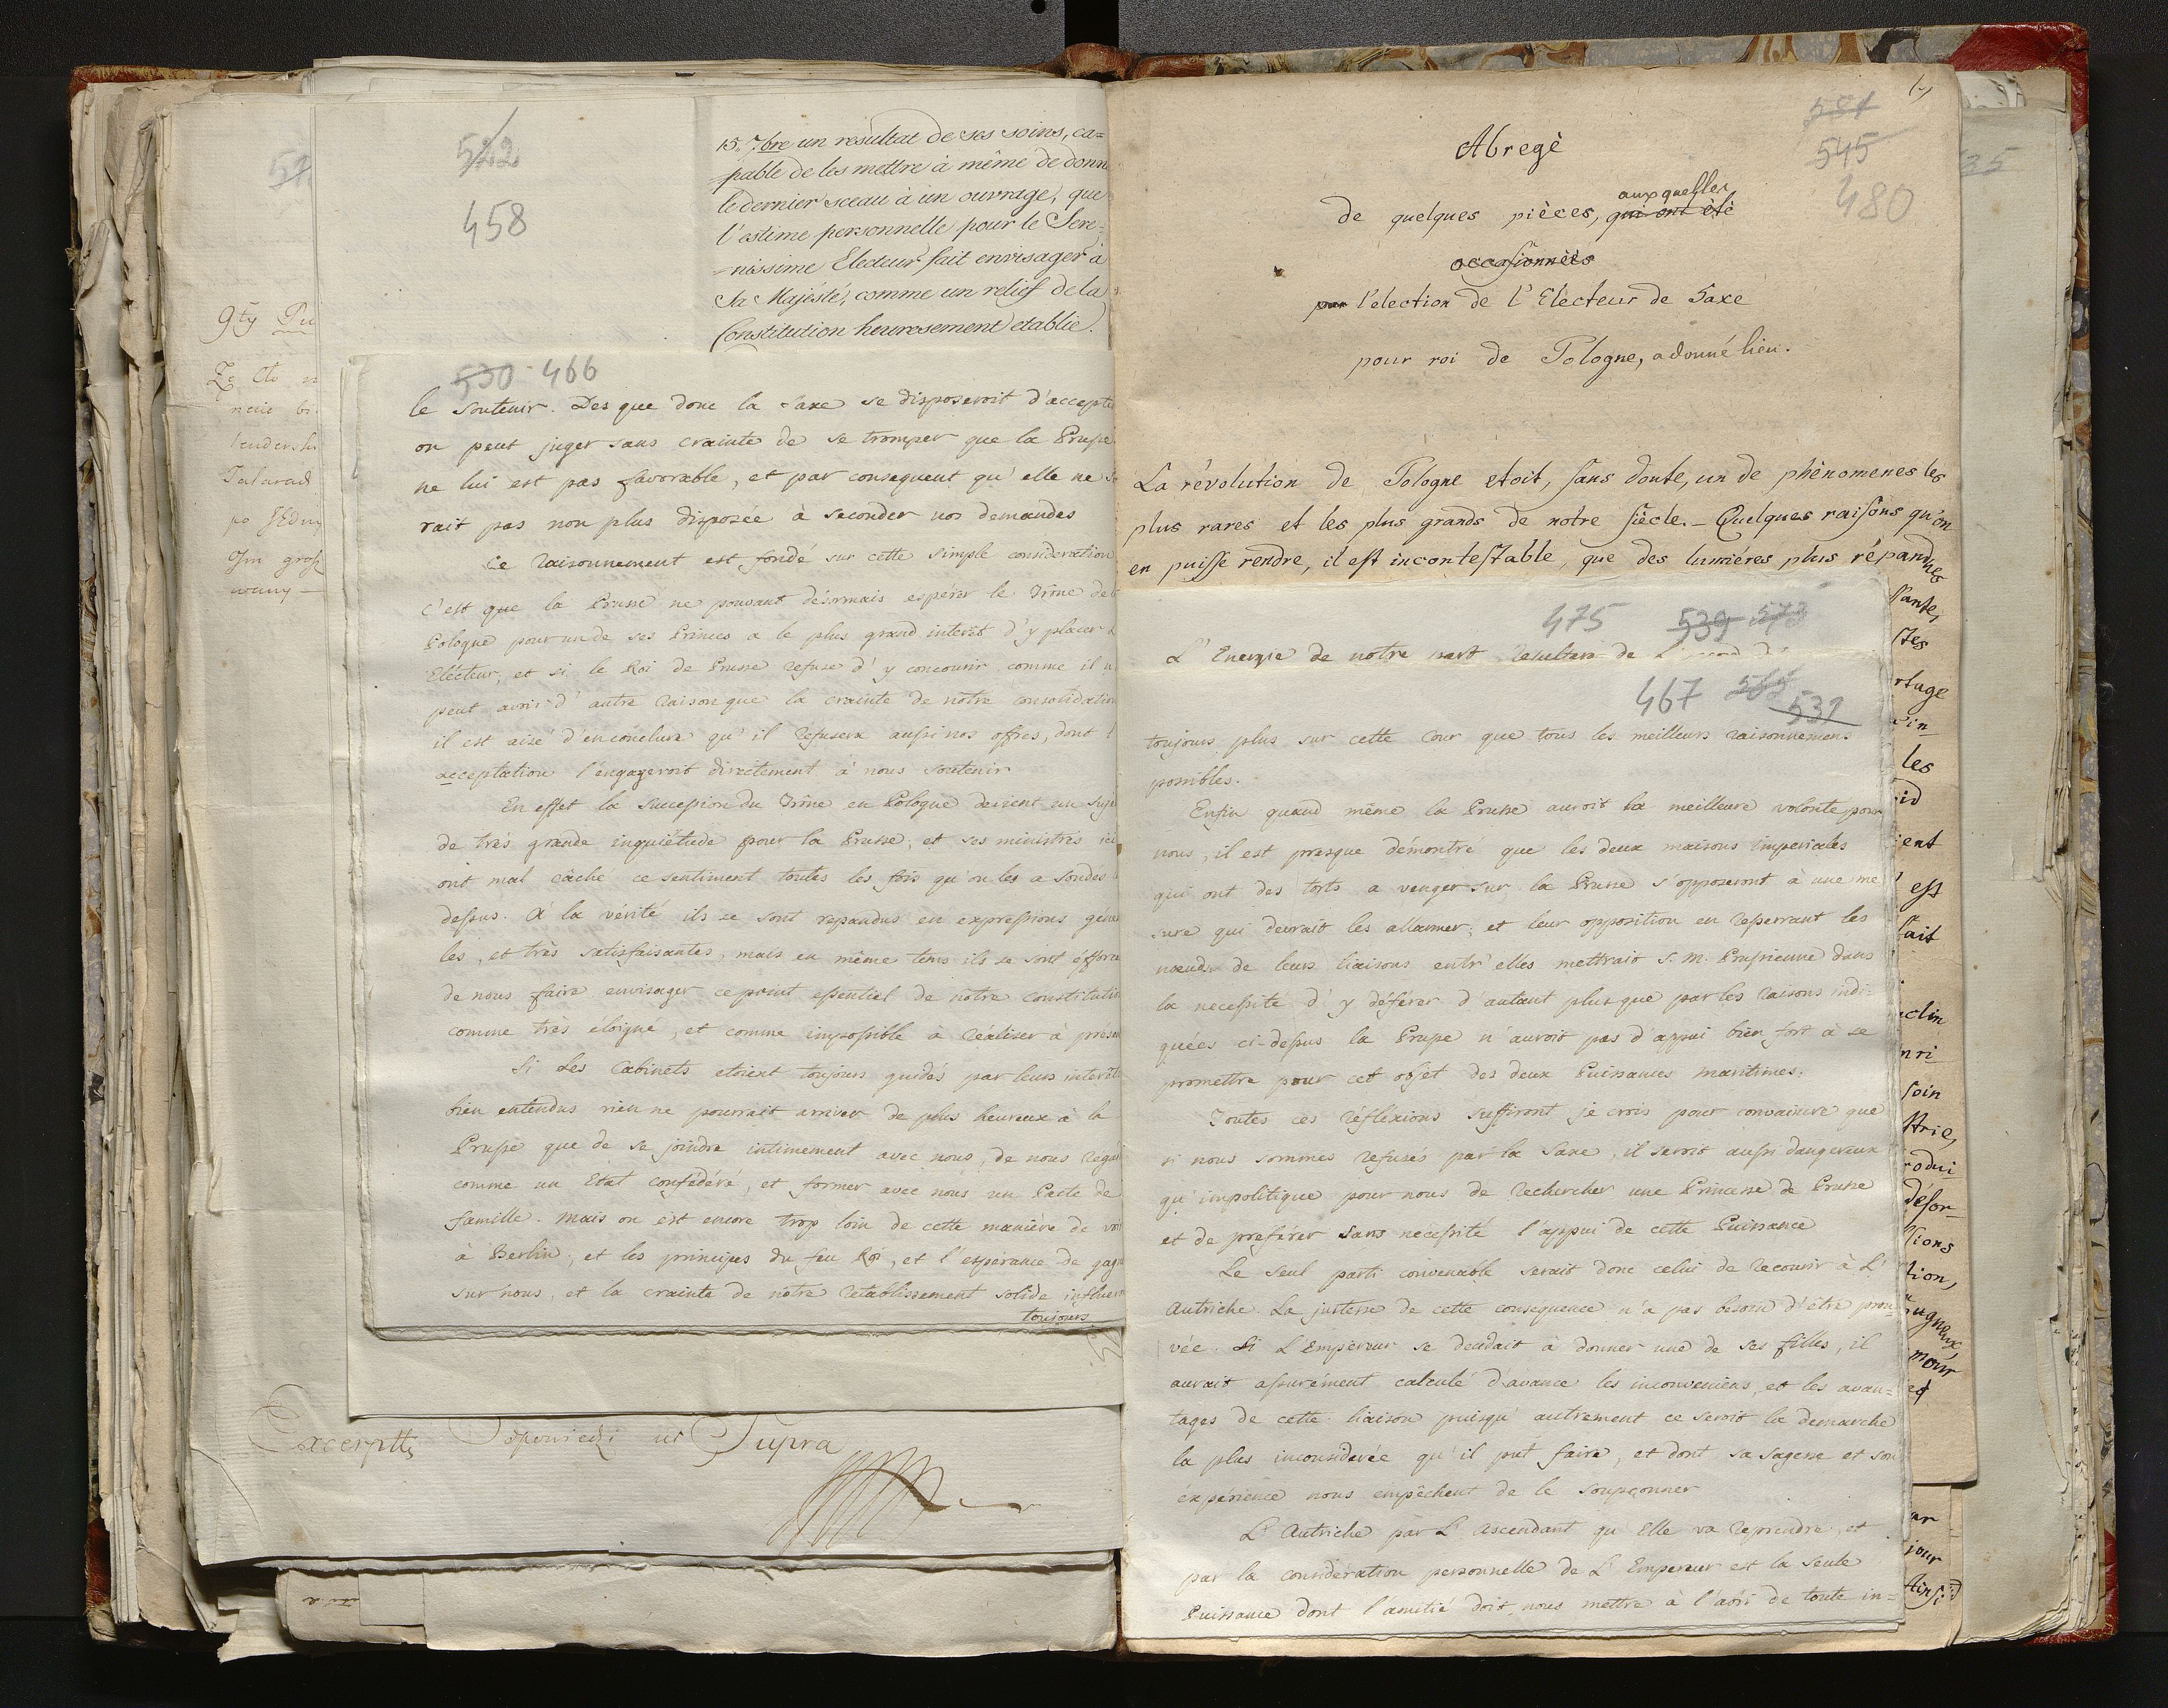 522
458
15. 7bre un resultat de ses soins, ca=
pable de les mettre à même de donn
le dernier sceau à un ouvrage, que
l'estime personnelle pour le Sere=
=nissime Electeur fait envisager à
Sa Majésté, comme un relief de la
Constitution heuresement etablie.
530 - 466
le soutenir. Des que donc la Saxe se disposeroit d'accepte
on peut juger sans crainte de se tromper que la Prusse
ne lui est pas favorable, et par consequent qu'elle ne
rait pas non plus disposée à seconder nos demandes
Ce raisonnement est fondé sur cette simple consideration
c'est que la Prusse ne pouvant désormais espérer le Trône de
Pologne pour un de ses Princes a le plus grand interêt d'y placer
Electeur, et si le Roi de Prusse refuse d'y concourir comme il n
peut avoir d'autre raison que la crainte de notre consolidation
il est aisé d'en conclure qu'il refusera aussi nos offres, dont l
acceptation l'engageroit directement à nous soutenir
En effet la succession du Trône en Pologne devient un suje
de très grande inquiétude pour la Prusse, et ses ministres ici
ont mal câché ce sentiment toutes les fois qu'on les a sondés
dessus. A la vérité ils se sont repandus en expressions géné
les, et très satisfaisantes, mais en même tems ils se sont éfforcé
de nous faire envisager ce point essentiel de notre constitution
comme très éloigné, et comme impossible à réaliser à prése
Si les Cabinets etoient toujours guidés par leurs interêts
bien entendus rien ne pourrait arriver de plus heureux à la
Prusse que de se joindre intimement avec nous, de nous rega
comme un Etat confédéré, et former avec nous un Pacte de
famille. Mais on est encore trop loin de cette manière de voi
à Berlin, et les principes du feu Roi, et l'espérance de gagn
sur nous, et la crainte de notre retablissement solide influer
toujours
ut Supra
581
545
480
Abregé
de quelques pièces, qui ont été
auxquelles
occasionnées
par l'election de l'Electeur de Saxe
pour roi de Pologne, a donné lieu.
La révolution de Pologne etoit, sans doute, un de phénomenes les
plus rares et les plus grands de notre siècle. - Quelques raisons qu'on
en puisse rendre, il est incontestable, que des lumiéres plus répandues
475 539
L'Energie de notre part resultera de
467 531
toujours plus sur cette Cour que tous les meilleurs raisonnemens
possibles.
Enfin quand même la Prusse auroit la meilleure volonté pour
nous, il est presque démontré que les deux maisons imperiales
qui ont des torts a venger sur la Prusse s'opposeront à une me
sure qui devrait les allarmer; et leur opposition en resserrant les
nœuds de leurs liaisons entr'elles mettrait S. M. Prussienne dans
la necessité d'y déférer d'autant plus que par les raisons indi=
quées ci-dessus la Prusse n'auroit pas d'appui bien fort à se
promettre pour cet objet des deux Puissances maritimes.
Toutes ces réfléxions suffiront je crois pour convaincre que
si nous sommes refusés par la Saxe, il seroit aussi dangereux
qu'impolitique pour nous de rechercher une Princesse de Prusse
et de préférer sans nécessité l'appui de cette Puissance
Le seul parti convenable serait donc celui de recourir à L'
Autriche. La justesse de cette consequence n'a pas besoin d'être prou=
vée. Si L'Empereur se decidait à donner une de ses filles, il
aurait assurément calculé d'avance les inconveniens, et les avan=
tages de cette liaison puisqu'autrement ce seroit la demarche
la plus inconsiderée qu'il put faire, et dont sa sagesse et son
éxpérience nous empêchent de le soupçonner
L'Autriche par L'ascendant qu'Elle va reprendre, et
par la considération personnelle de L'Empereur est la seule
Puissance dont l'amitié doit nous mettre à l'abri de toute in=